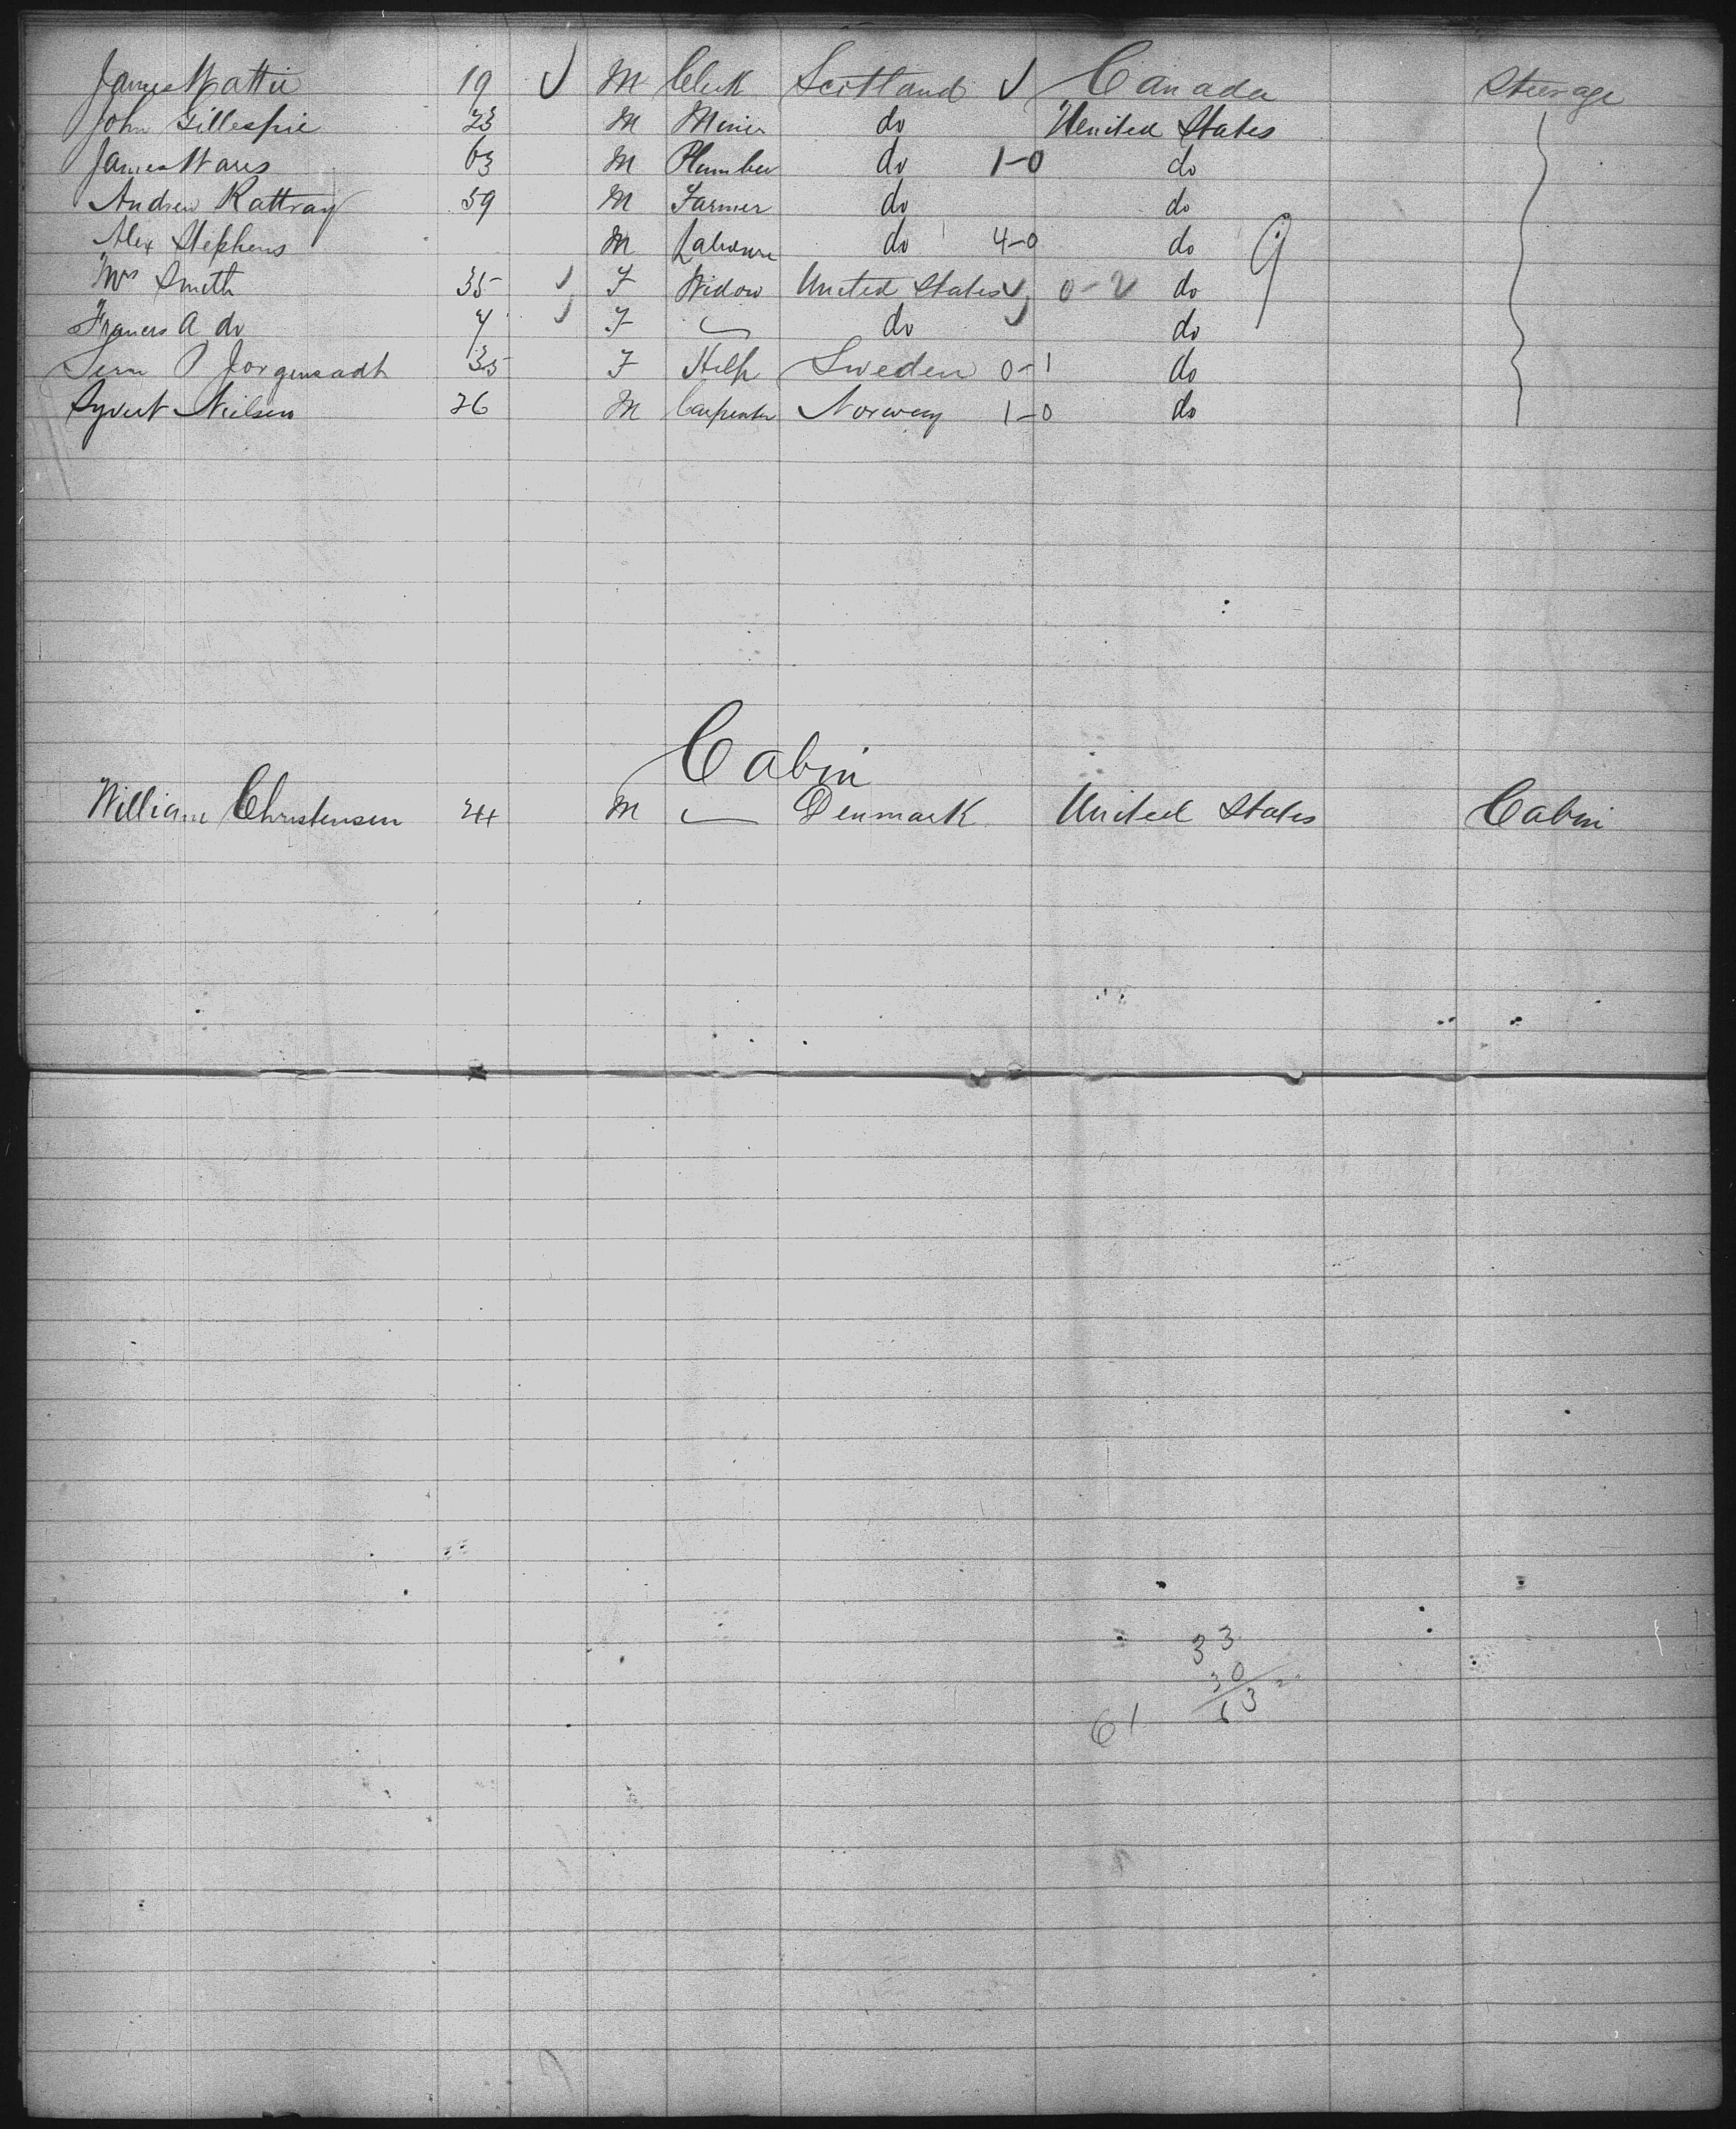 James Wattie 19 ✓ M Clerk Scotland ✓ Canada Steerage
John Gillespie 23 M Miner do United States
James Wares 63 M Plumber do 1-0 do
Andrew Rattray 59 M Farmer do do
Alex Stephens M Laborer do 4-0 do 9
Mrs Smith 35 ✓ F Widow United States ✓ 0-2 do
Frances A do 7 ✓ F do ✓ do
P Jorgensadt 35 F Help Sweden 0-1 do
Syvert Nielsen 26 M Carpenter Norway 1-0 do
Cabin
William Christensen 24 M Denmark United States Cabin
33
30
63
61